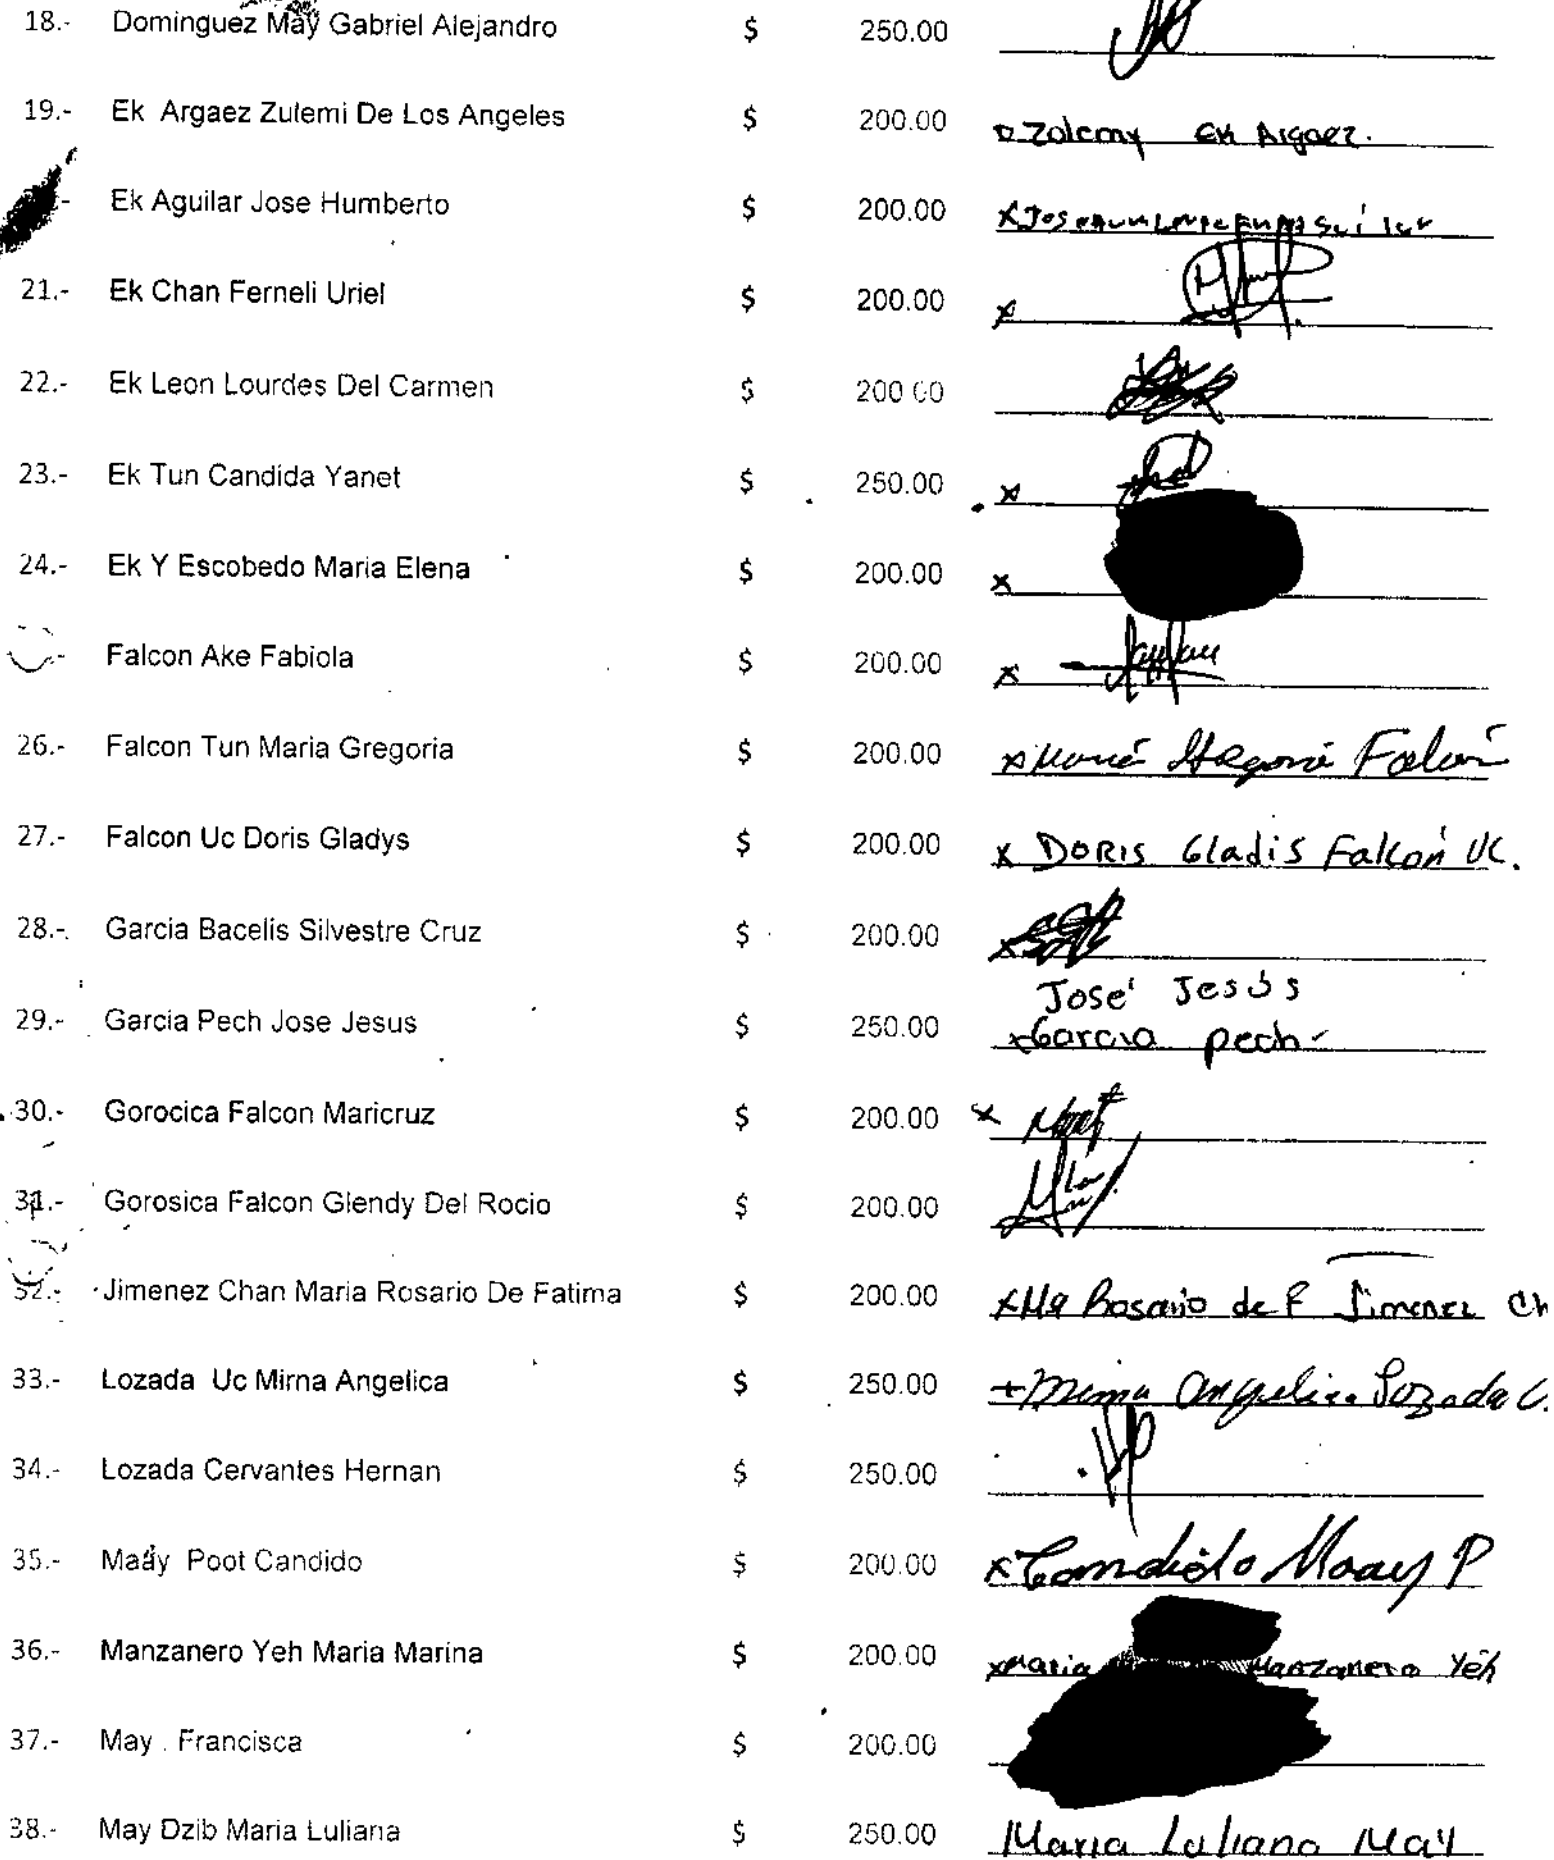 18.- Dominguez May Gabriel Alejandro $ 250.00
19.- Ek Argaez Zulemi De Los Angeles $ 200.00 Zolemy Ek Argaez.
- Ek Aguilar Jose Humberto $ 200.00 x Jose
21.- Ek Chan Ferneli Uriel $ 200.00 x
22.- Ek Leon Lourdes Del Carmen $ 200.00
23.- Ek Tun Candida Yanet $ 250.00 x
24.- Ek Y Escobedo Maria Elena $ 200.00 x
- Falcon Ake Fabiola $ 200.00 x
26.- Falcon Tun Maria Gregoria $ 200.00 x Maria Falcon
27.- Falcon Uc Doris Gladys $ 200.00 x DORIS Gladis Falcón UC.
28.- Garcia Bacelis Silvestre Cruz $ 200.00 x
José Jesús
29.- Garcia Pech Jose Jesus $ 250.00 x Garcia pech
30.- Gorocica Falcon Maricruz $ 200.00 x
31.- Gorosica Falcon Glendy Del Rocio $ 200.00
32.- Jimenez Chan Maria Rosario De Fatima $ 200.00 x Ma Rosario de F Jimenez Ch
33.- Lozada Uc Mirna Angelica $ 250.00 + Mirna Angelica Lozada U.
34.- Lozada Cervantes Hernan $ 250.00
35.- Maay Poot Candido $ 200.00 x Candido Maay P
36.- Manzanero Yeh Maria Marina $ 200.00 x Maria Manzanero Yéh
37.- May . Francisca $ 200.00
38.- May Dzib Maria Luliana $ 250.00 Maria Luliana May